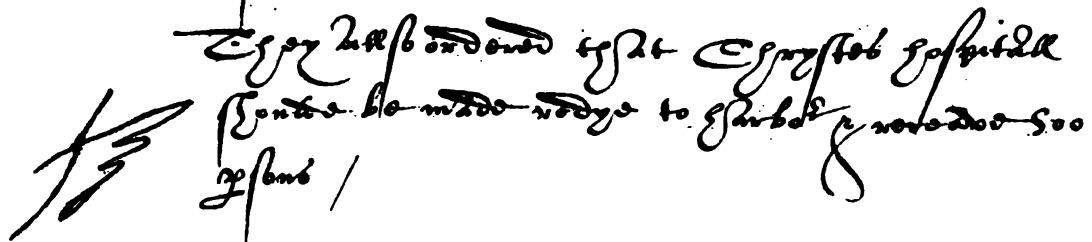 They allso ordered that Chrystes hospitall
shoulde be made redye to harbor & receave 500
persons /